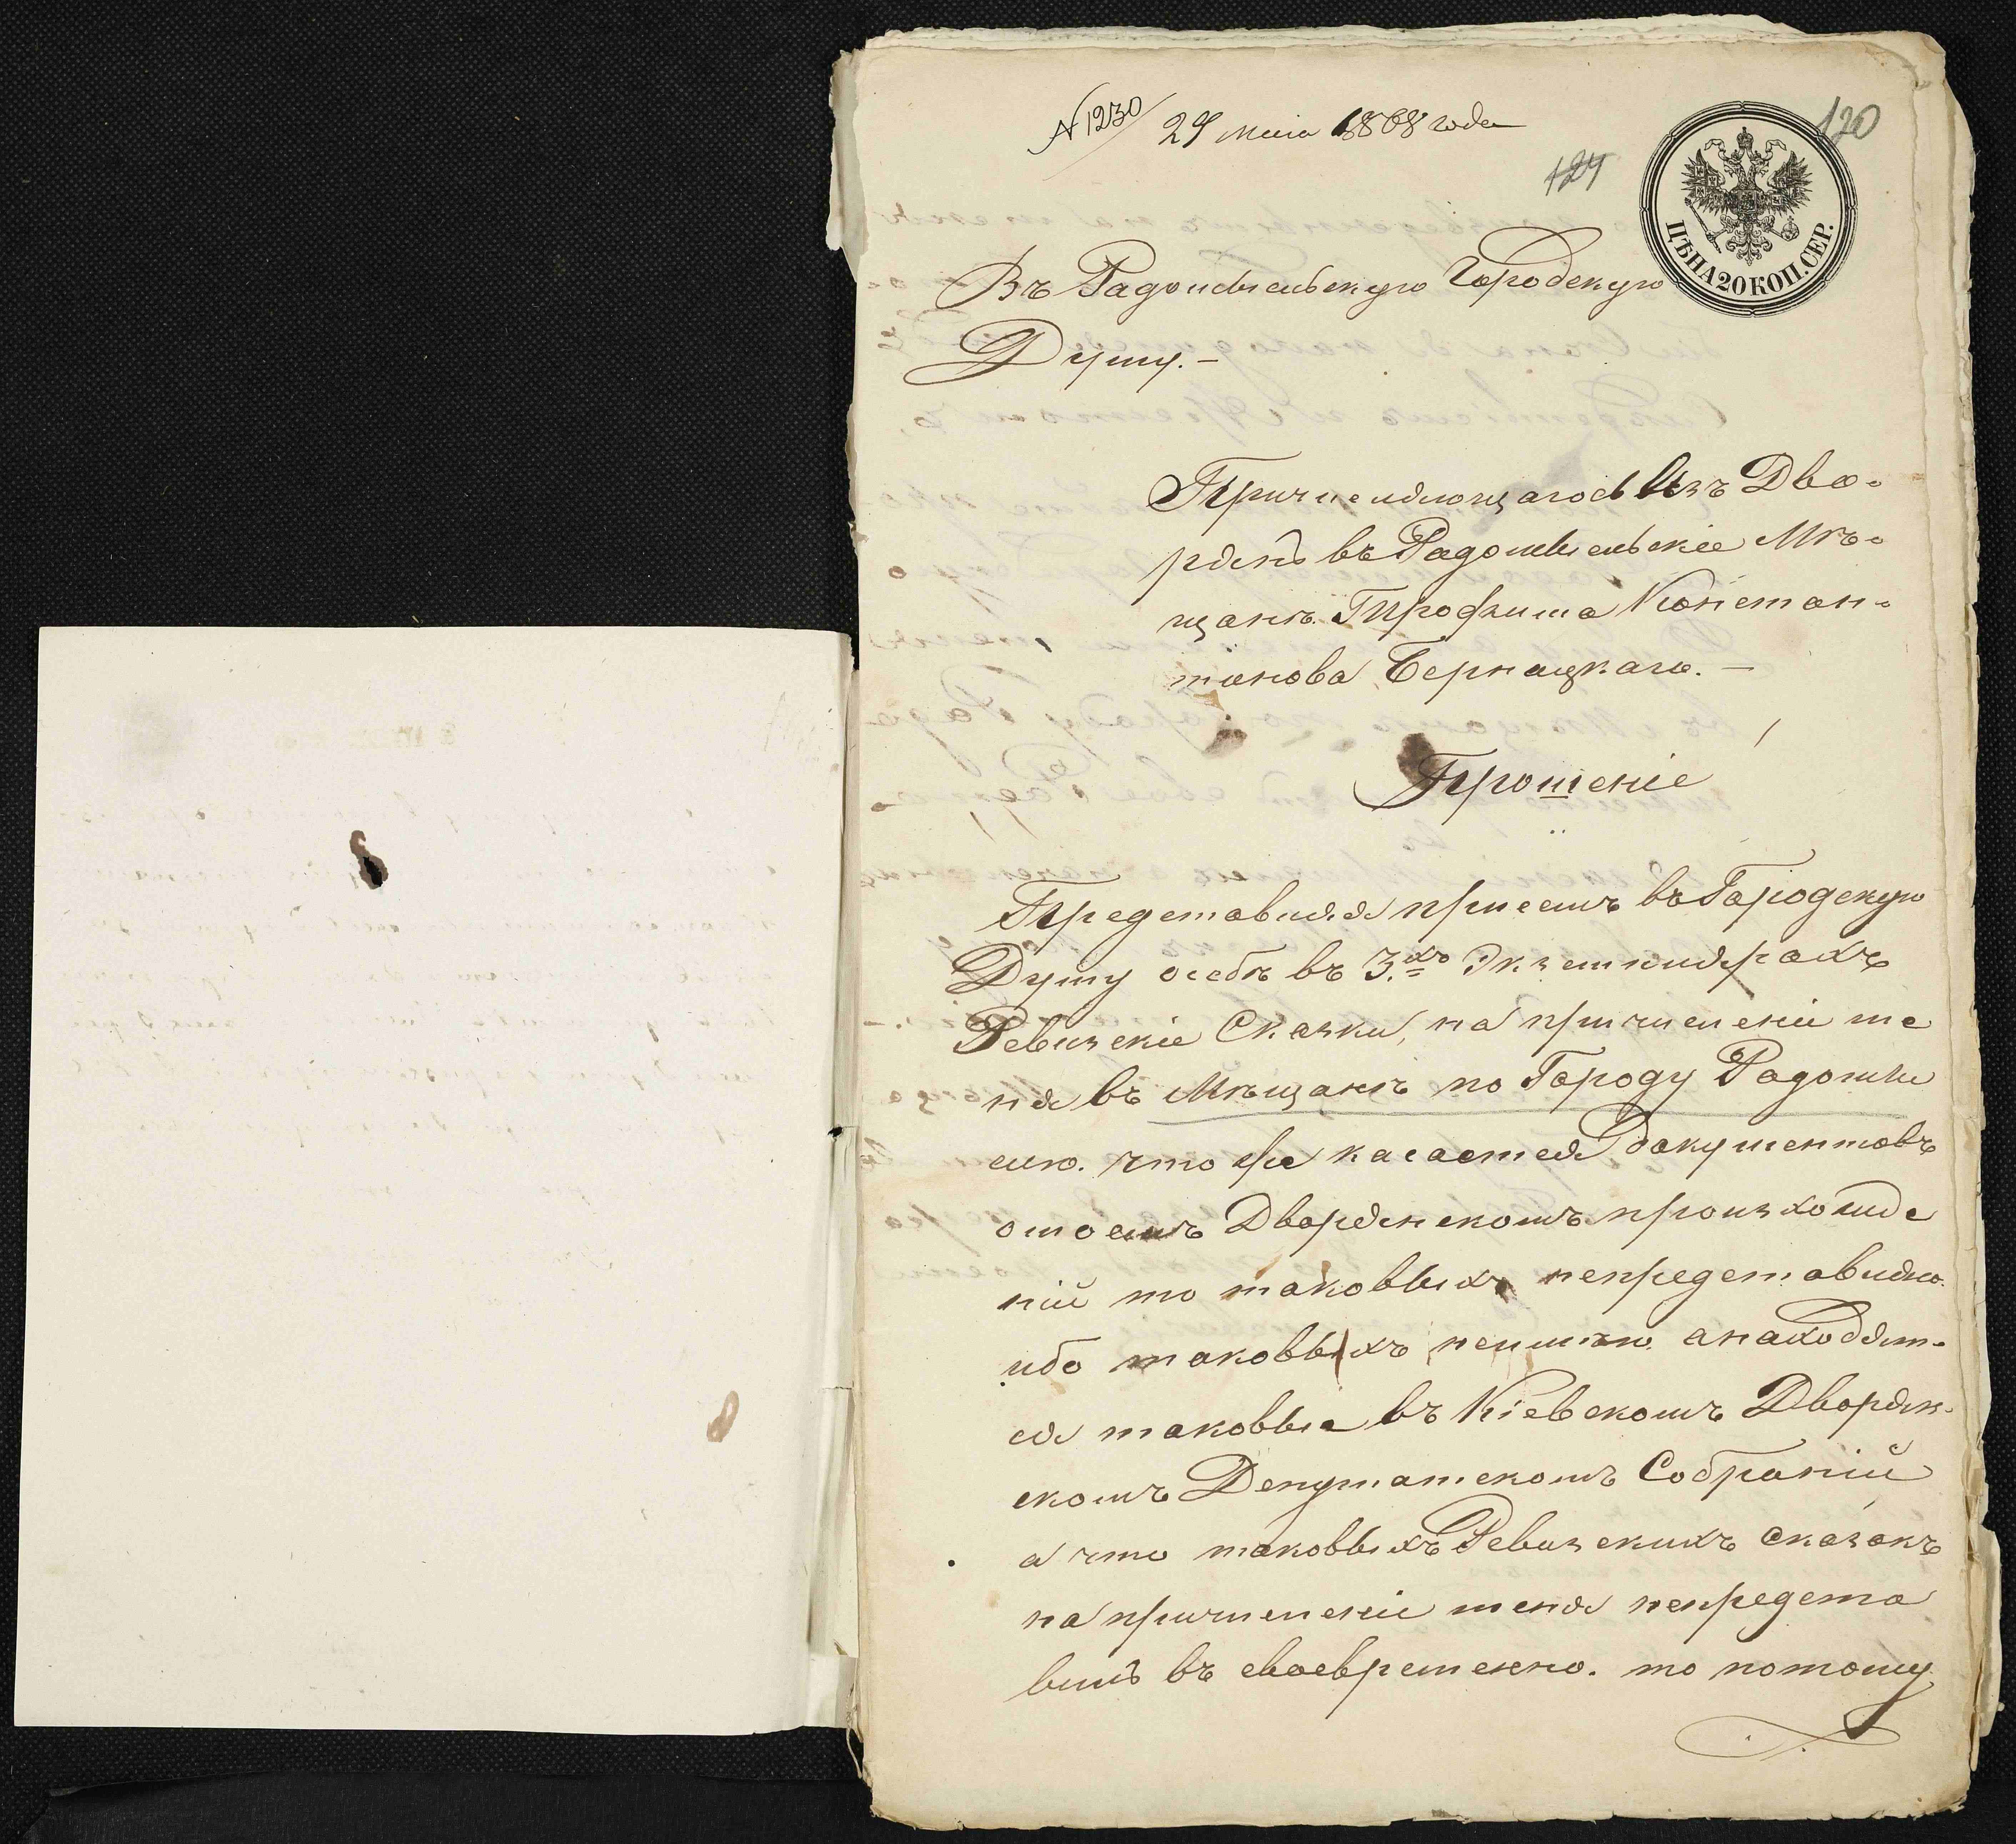 N 1230
29 мая 1868 года
120
124
ЦѢНА 20 КОП. СЕР.
Въ Радомысльскую Городскую
Думу.-
Причисляющагось Изъ Дво-
рянъ въ Радомысльскіе Мѣ-
щанѣ Трофима Констан-
тинова Бернацкаго.-
Прошеніе
Представляя присемъ въ Городскую
Думу осебѣ въ 3.хъ Экземплярахъ
Ревизскіе Сказки, на причисленіи ме
ня въ Мѣщанѣ по Городу Радомы
слю. что же касается документовъ
отоемъ Дворянскомъ происхожде
ній то таковыхъ непредставляю.
ибо таковыхъ неимѣю анаходят-
ся таковые въ Кіевскомъ Дворян-
скомъ Депутатскомъ Собраній
а что таковыхъ Ревизскихъ сказакъ
на причисленіи меня непредста
вилъ въ своевременно. то потому